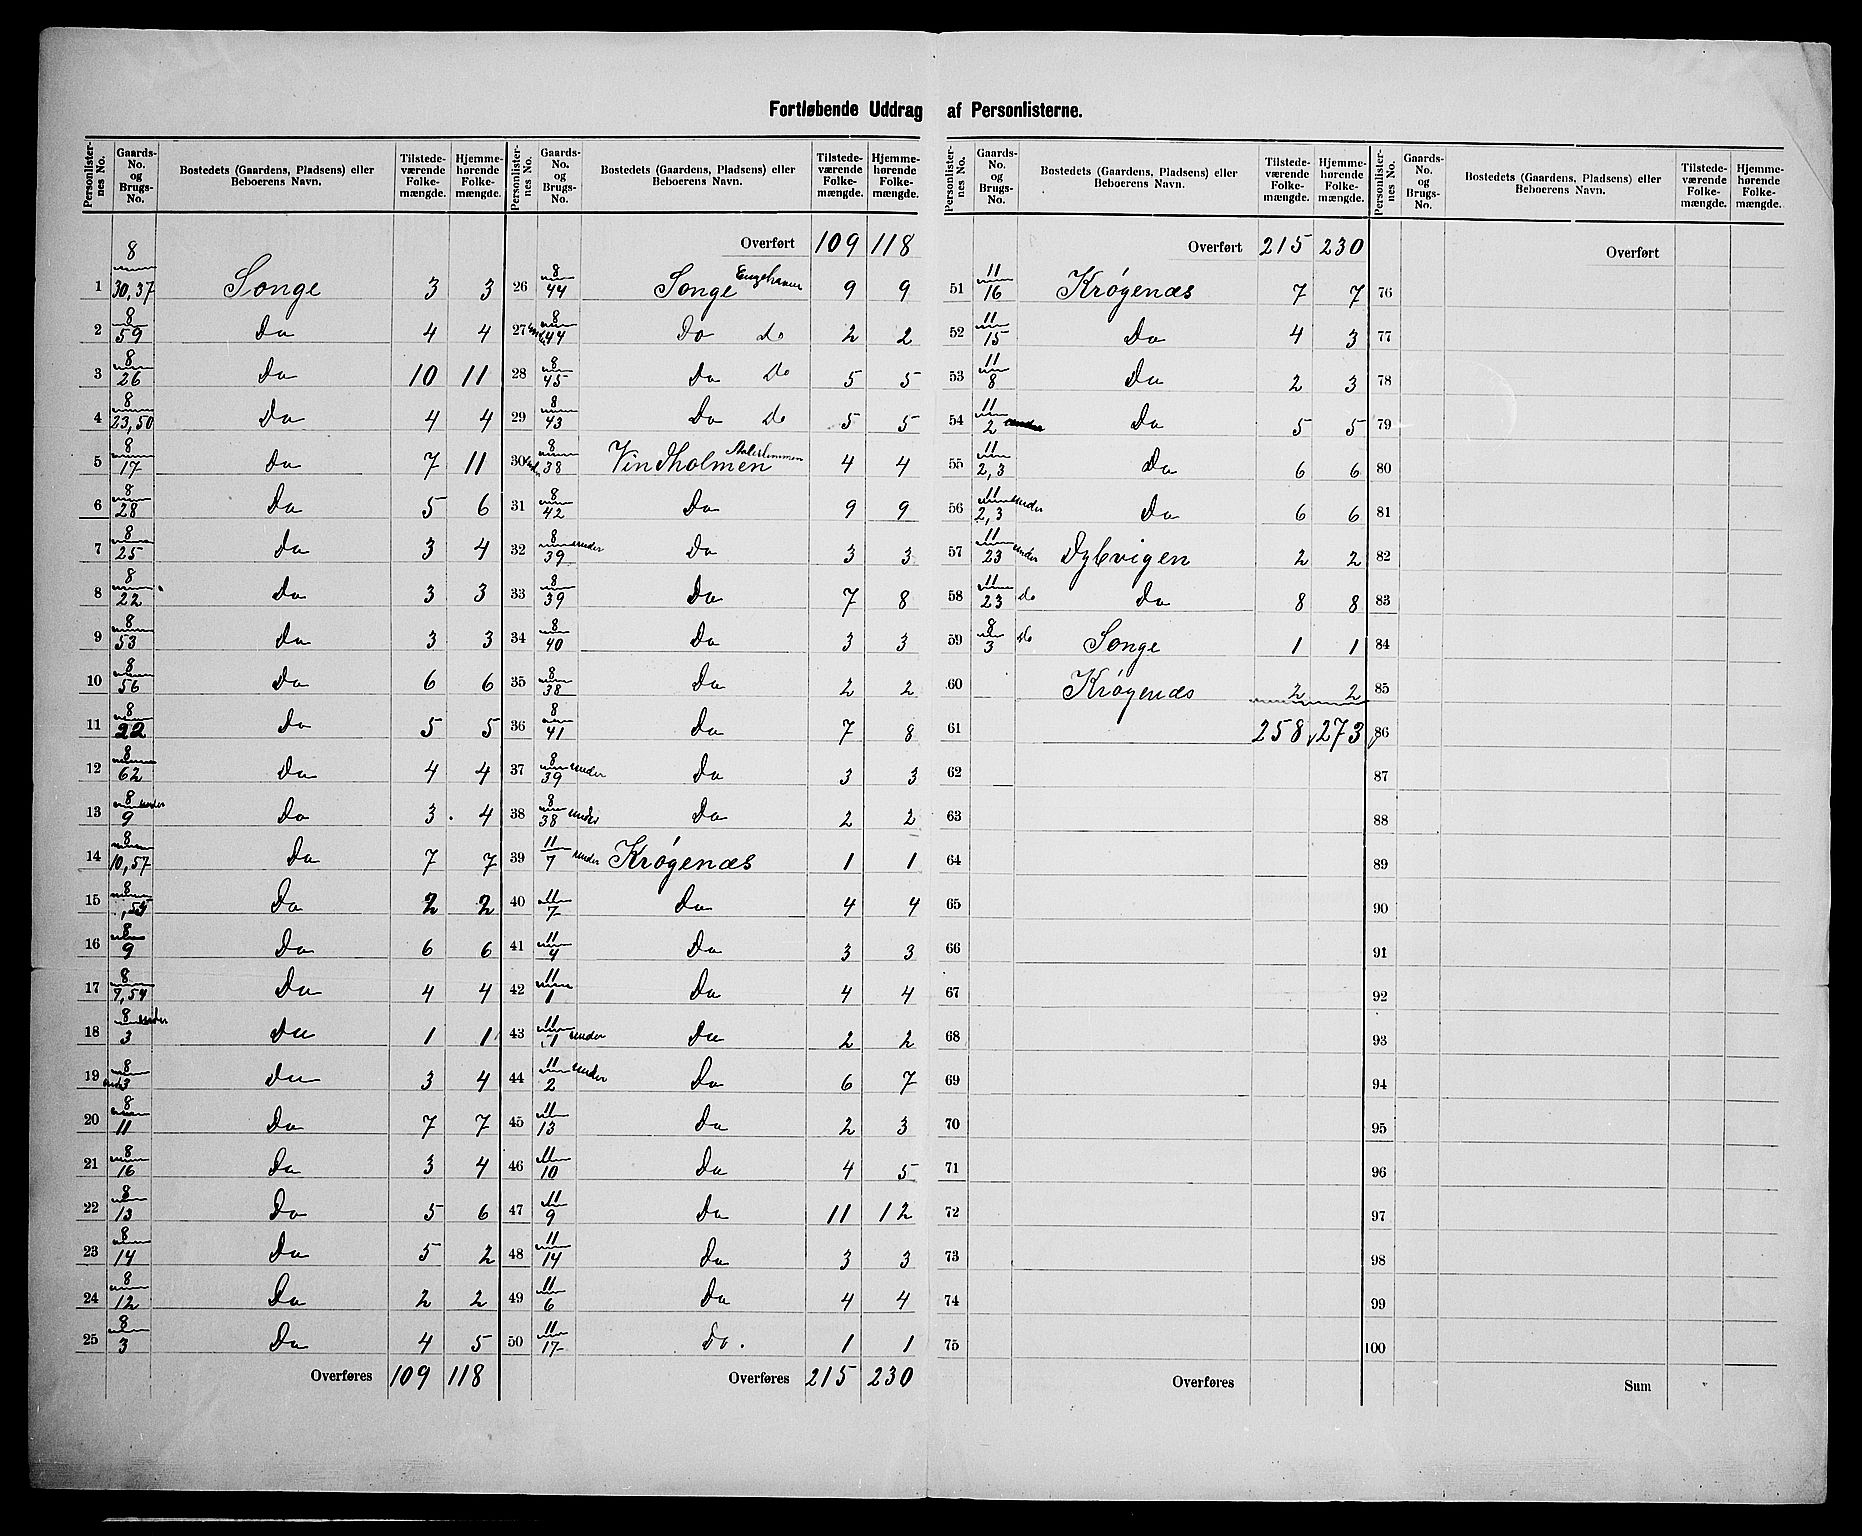 Fortløbende Uddrag af Personlisterne.
Personlisternes No. | Gaards-No. og Brugs-No. | Bostedets (Gaardens, Pladsens) eller Beboerens Navn. | Tilstedeværende Folkemængde. | Hjemmehørende Folkemængde.
1 | 8/30,37 | Songe | 3 | 3
2 | 8/59 | Do | 4 | 4
3 | 8/26 | Do | 10 | 11
4 | 8/23,50 | Do | 4 | 4
5 | 8/17 | Do | 7 | 11
6 | 8/28 | Do | 5 | 6
7 | 8/25 | Do | 3 | 4
8 | 8/22 | Do | 3 | 3
9 | 8/53 | Do | 3 | 3
10 | 8/56 | Do | 6 | 6
11 | 8/22 | Do | 5 | 5
12 | 8/62 | Do | 4 | 4
13 | 8/9 under | Do | 3 | 4
14 | 8/10,57 | Do | 7 | 7
15 | 8/ | Do | 2 | 2
16 | 8/9 | Do | 6 | 6
17 | 8/7,54 | Do | 4 | 4
18 | 8/3 under | Do | 1 | 1
19 | 8/3 | Do | 3 | 4
20 | 8/11 | Do | 7 | 7
21 | 8/16 | Do | 3 | 4
22 | 8/13 | Do | 5 | 6
23 | 8/14 | Do | 5 | 2
24 | 8/12 | Do | 2 | 2
25 | 8/3 | Do | 4 | 5
Overføres 109 118
Personlisternes No. | Gaards-No. og Brugs-No. | Bostedets (Gaardens, Pladsens) eller Beboerens Navn. | Tilstedeværende Folkemængde. | Hjemmehørende Folkemængde.
Overført 109 118
26 | 8/44 | Songe Engehaven | 9 | 9
27 | 8/44 | Do do | 2 | 2
28 | 8/45 | Do Do | 5 | 5
29 | 8/43 | Do Do | 5 | 5
30 | 8/38 | Vindholmen | 4 | 4
31 | 8/42 | Do | 9 | 9
32 | 8/39 under | Do | 3 | 3
33 | 8/39 | Do | 7 | 8
34 | 8/40 | Do | 3 | 3
35 | 8/38 | Do | 2 | 2
36 | 8/41 | Do | 7 | 8
37 | 8/39 under | Do | 3 | 3
38 | 8/38 under | Do | 2 | 2
39 | 11/7 under | Krøgenæs | 1 | 1
40 | 11/7 | Do | 4 | 4
41 | 11/4 | Do | 3 | 3
42 | 11/1 | Do | 4 | 4
43 | 11/1 under | Do | 2 | 2
44 | 11/2 under | Do | 6 | 7
45 | 11/13 | Do | 2 | 3
46 | 11/10 | Do | 4 | 5
47 | 11/9 | Do | 11 | 12
48 | 11/14 | Do | 3 | 3
49 | 11/6 | Do | 4 | 4
50 | 11/17 | Do. | 1 | 1
Overføres 215 230
Personlisternes No. | Gaards-No. og Brugs-No. | Bostedets (Gaardens, Pladsens) eller Beboerens Navn. | Tilstedeværende Folkemængde. | Hjemmehørende Folkemængde.
Overført 215 230
51 | 11/16 | Krøgenæs | 7 | 7
52 | 11/15 | Do | 4 | 3
53 | 11/8 | Do | 2 | 3
54 | 11/2 | Do | 5 | 5
55 | 11/2,3 | Do | 6 | 6
56 | 11/2,3 under | Do | 6 | 6
57 | 11/23 under | Dybvigen | 2 | 2
58 | 11/23 do | Do | 8 | 8
59 | 8/3 do | Songe | 1 | 1
60 | Krøgenæs | 2 | 2
61 | 258 | 273
62
63
64
65
66
67
68
69
70
71
72
73
74
75
Overføres
Personlisternes No. | Gaards-No. og Brugs-No. | Bostedets (Gaardens, Pladsens) eller Beboerens Navn. | Tilstedeværende Folkemængde. | Hjemmehørende Folkemængde.
Overført
76
77
78
79
80
81
82
83
84
85
86
87
88
89
90
91
92
93
94
95
96
97
98
99
100
Sum